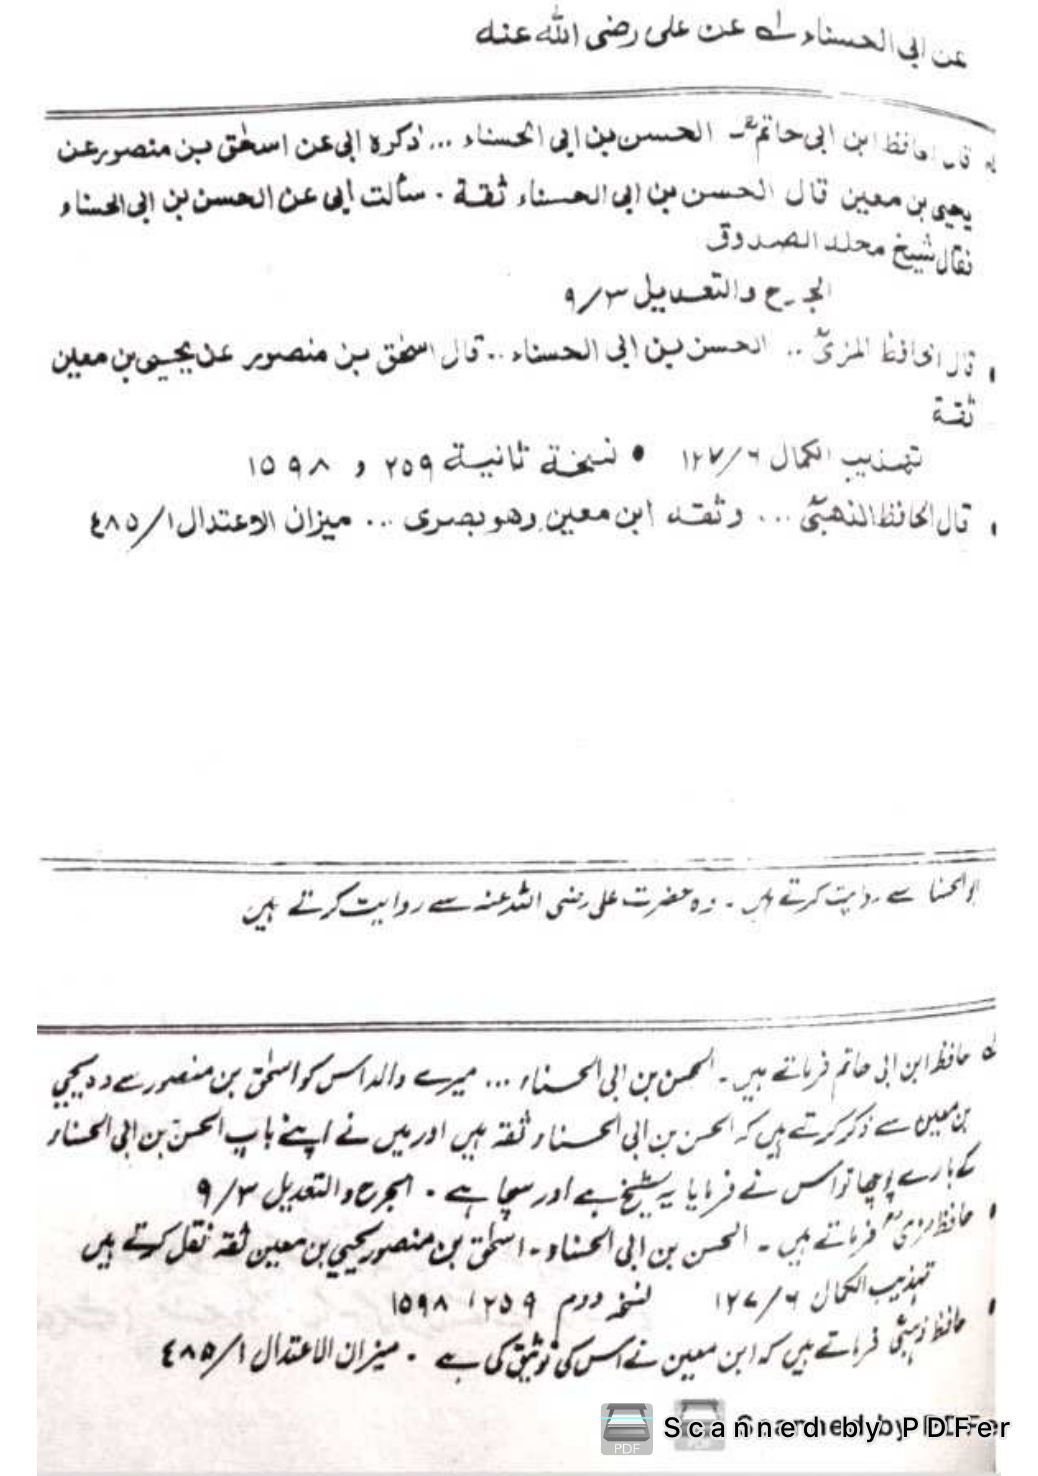 عن ابی الحسناء لہ عن علی رضی اللہ عنہ
لہ قال الحافظ ابن ابی حاتمؒ۔ الحسن بن ابی الحسناء ... ذکرہ ابی عن اسحٰق بن منصور عن
یحییٰ بن معین قال الحسن بن ابی الحسناء ثقة ۔ سألت ابی عن الحسن بن ابی الحسناء
فقال شیخ محلہ الصدوق
الجرح والتعدیل ۹/۳
قال الحافظ المزیؒ .. الحسن بن ابی الحسناء .. قال اسحٰق بن منصور عن یحییٰ بن معین
ثقة
تہذیب الکمال ۱۲۷/۶ ● نسخة ثانیة ۲۵۹ و ۱۵۹۸
قال الحافظ الذھبیؒ ... وثقہ ابن معین وھو بصری ... میزان الاعتدال ۴۸۵/۱
ابوالحسنا سے روایت کرتے ہیں ۔ وہ حضرت علی رضی اللہ عنہ سے روایت کرتے ہیں
لہ حافظ ابن ابی حاتم فرماتے ہیں ۔ الحسن بن ابی الحسناء ... میرے والد اس کو اسحٰق بن منصور سے وہ یحییٰ
بن معین سے ذکر کرتے ہیں کہ الحسن بن ابی الحسناء ثقہ ہیں اور میں نے اپنے باپ الحسن بن ابی الحسناء
کے بارے پوچھا تو اس نے فرمایا یہ شیخ ہے اور سچا ہے ۔ الجرح والتعدیل ۹/۳
حافظ مزیؒ فرماتے ہیں ۔ الحسن بن ابی الحسناء ۔ اسحٰق بن منصور یحییٰ بن معین ثقہ نقل کرتے ہیں
تہذیب الکمال ۱۲۷/۶ نسخہ دوم ۲۵۹، ۱۵۹۸
حافظ ذہبیؒ فرماتے ہیں کہ ابن معین نے اس کی توثیق کی ہے ۔ میزان الاعتدال ۴۸۵/۱
PDF Scanned by PDFer